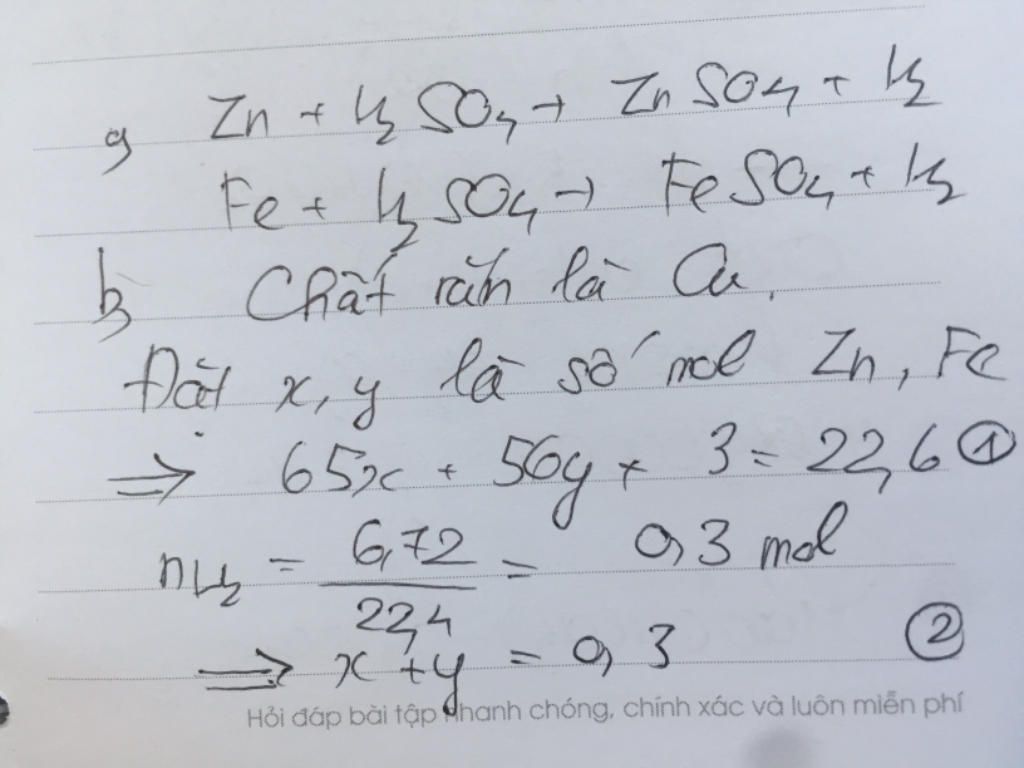 a, Zn + H2SO4 → ZnSO4 + H2
Fe + H2SO4 → FeSO4 + H2
b, Chất rắn là Cu.
Đặt x, y là số mol Zn, Fe
⇒ 65x + 56y + 3 = 22,6 ①
nH2 = 6,72/22,4 = 0,3 mol
⇒ x + y = 0,3 ②
Hỏi đáp bài tập nhanh chóng, chính xác và luôn miễn phí